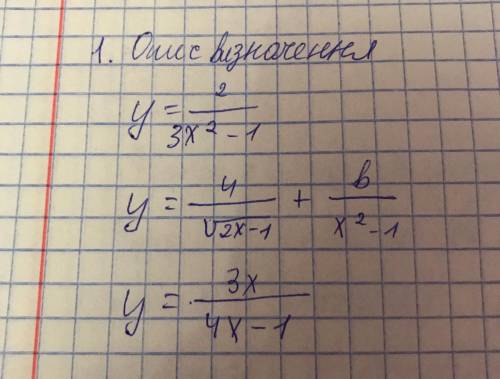 1. Опис визначення
y = 2/(3x² - 1)
y = 4/√(2x-1) + b/(x² - 1)
y = 3x/(4x - 1)